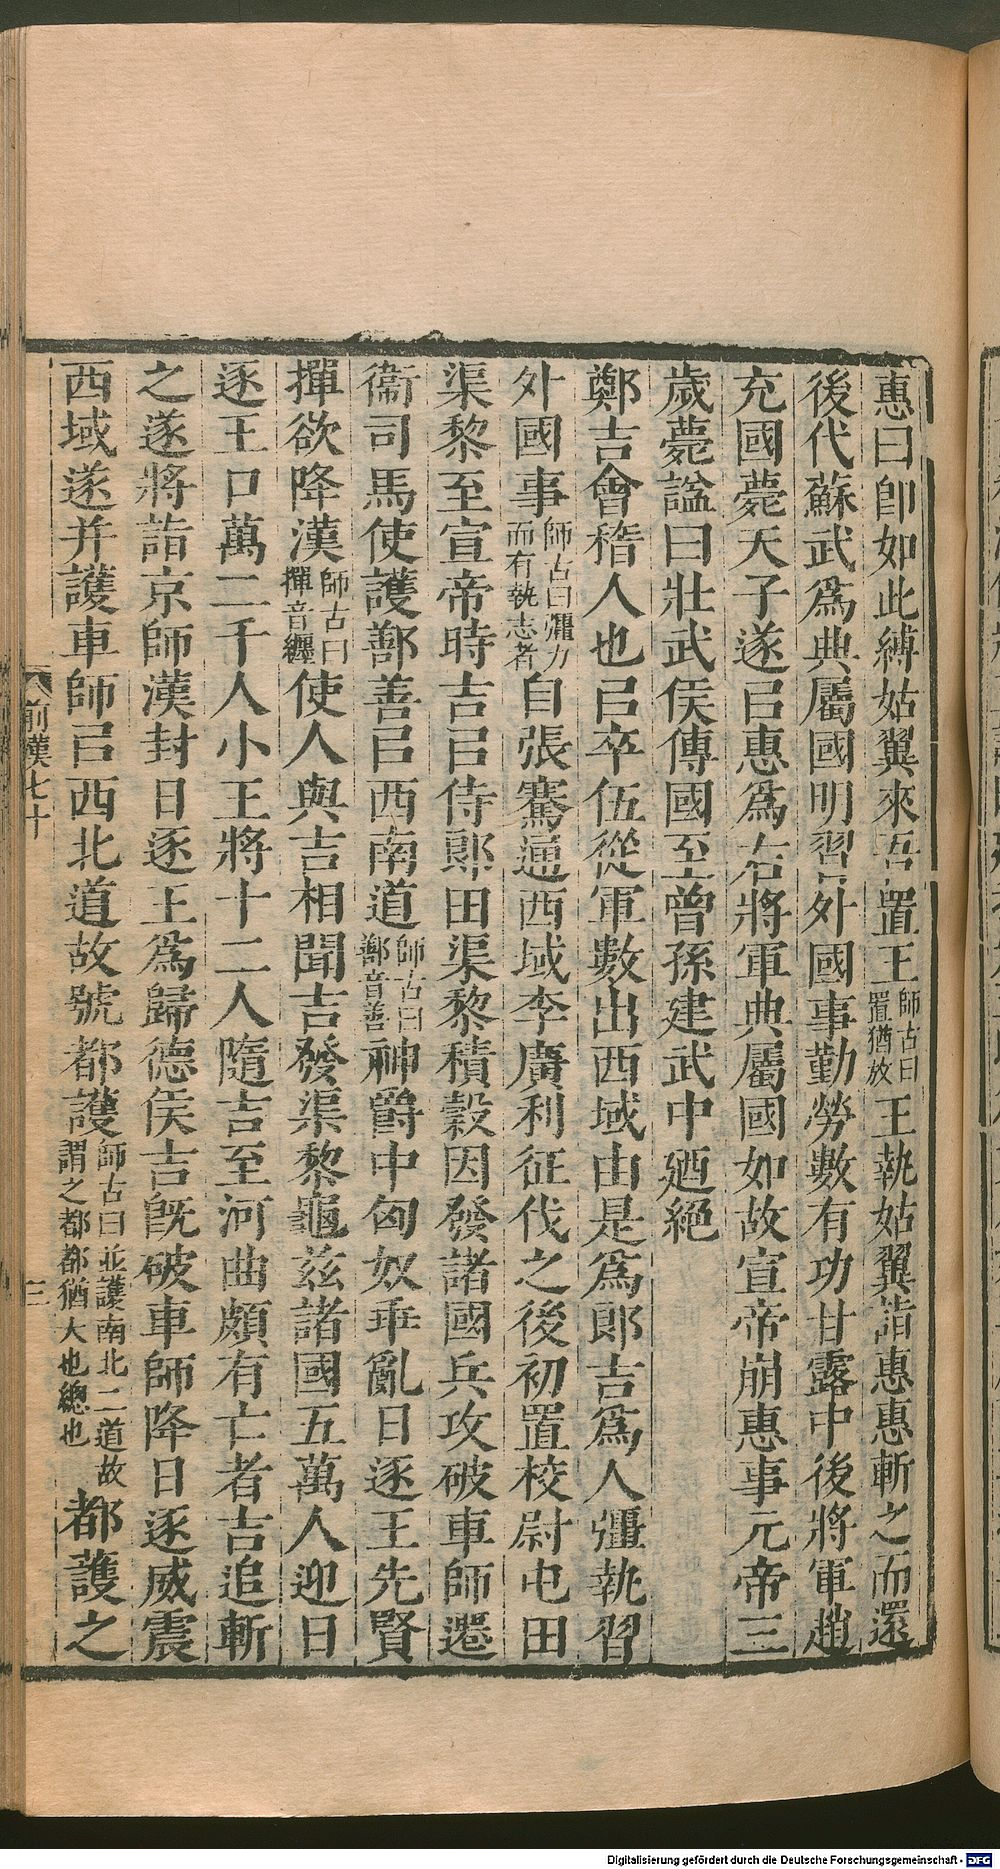 惠曰卽如此縛姑翼來吾置王師古曰置猶放王執姑翼詣惠惠斬之而還
後代蘇武爲典屬國明習外國事勤勞數有功甘露中後將軍趙
充國薨天子遂㠯惠爲右將軍典屬國如故宣帝崩惠事元帝三
歲薨諡曰壯武侯傳國至曾孫建武中廼絕
鄭吉會稽人也㠯卒伍從軍數出西域由是爲郎吉爲人彊執習
外國事師古曰彊力而有執志者自張騫通西域李廣利征伐之後初置校尉屯田
渠黎至宣帝時吉㠯侍郎田渠黎積穀因發諸國兵攻破車師遷
衞司馬使護鄯善㠯西南道師古曰鄯音善神爵中匈奴乖亂日逐王先賢
撣欲降漢師古曰撣音纏使人與吉相聞吉發渠黎龜兹諸國五萬人迎日
逐王口萬二千人小王將十二人隨吉至河曲頗有亡者吉追斬
之遂將詣京師漢封日逐王爲歸德侯吉旣破車師降日逐威震
西域遂并護車師㠯西北道故號都護師古曰並護南北二道故謂之都都猶大也總也都護之
前漢七十
三
Digitalisierung gefördert durch die Deutsche Forschungsgemeinschaft - DFG